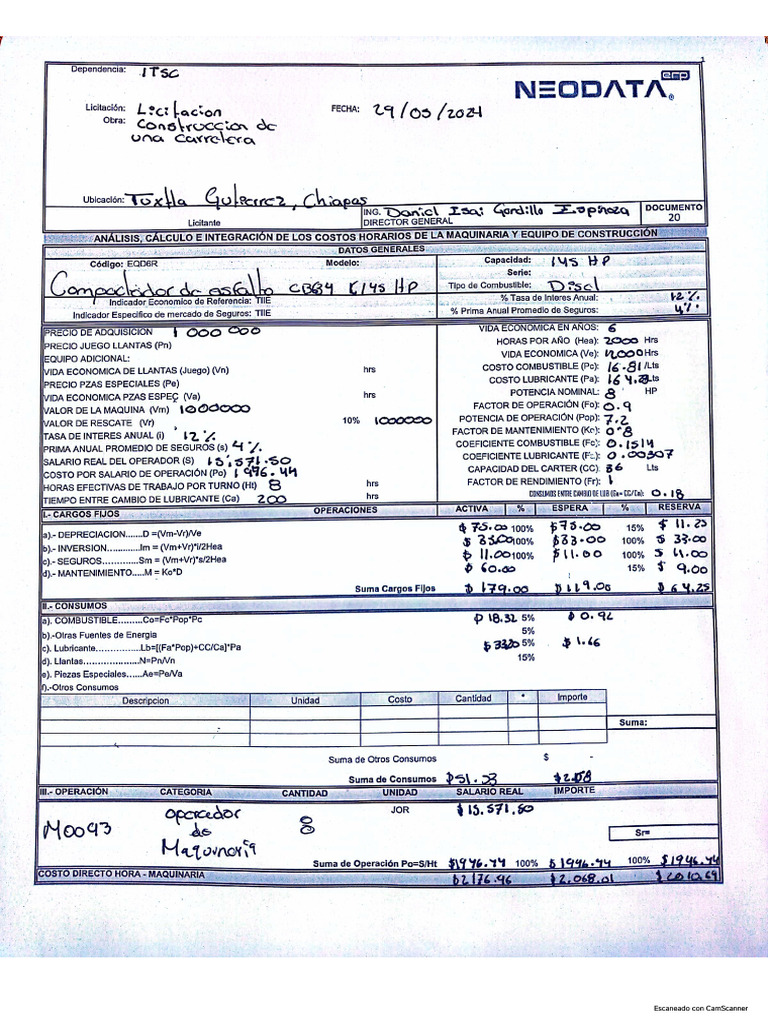 1
Dependencia: ITSC
NEODATA®
Licitación: Licitacion
FECHA: 29/05/2024
Obra: Construccion de
una carretera
Ubicación: Tuxtla Gutierrez, Chiapas
ING. Daniel Isai Gordillo Espinoza
DOCUMENTO
Licitante
DIRECTOR GENERAL
20
ANÁLISIS, CÁLCULO E INTEGRACIÓN DE LOS COSTOS HORARIOS DE LA MAQUINARIA Y EQUIPO DE CONSTRUCCIÓN
DATOS GENERALES
Código: EQD6R Modelo: Capacidad: 145 HP
Serie:
Compactador de asfalto CBB4 K145 HP
Tipo de Combustible: Disel
Indicador Economico de Referencia: TIIE % Tasa de Interes Anual: 12%
Indicador Especifico de mercado de Seguros: TIIE % Prima Anual Promedio de Seguros: 4%
PRECIO DE ADQUISICION 1 000 000
PRECIO JUEGO LLANTAS (Pn)
EQUIPO ADICIONAL:
VIDA ECONOMICA DE LLANTAS (Juego) (Vn) hrs
PRECIO PZAS ESPECIALES (Pe)
VIDA ECONOMICA PZAS ESPEC (Va) hrs
VALOR DE LA MAQUINA (Vm) 1000000
VALOR DE RESCATE (Vr) 10% 1000000
TASA DE INTERES ANUAL (i) 12%
PRIMA ANUAL PROMEDIO DE SEGUROS (s) 4%
SALARIO REAL DEL OPERADOR (S) 15,571.50
COSTO POR SALARIO DE OPERACIÓN (Po) 1946.44
HORAS EFECTIVAS DE TRABAJO POR TURNO (Ht) 8 hrs
TIEMPO ENTRE CAMBIO DE LUBRICANTE (Ca) 200 hrs
VIDA ECONOMICA EN AÑOS: 6
HORAS POR AÑO (Hea): 2000 Hrs
VIDA ECONOMICA (Ve): 12000 Hrs
COSTO COMBUSTIBLE (Pc): 16.81 /Lts
COSTO LUBRICANTE (Pa): 164.28 Lts
POTENCIA NOMINAL: 8 HP
FACTOR DE OPERACIÓN (Fo): 0.9
POTENCIA DE OPERACIÓN (Pop): 7.2
FACTOR DE MANTENIMIENTO (Ko): 0.8
COEFICIENTE COMBUSTIBLE (Fc): 0.1514
COEFICIENTE LUBRICANTE (Fc): 0.00307
CAPACIDAD DEL CARTER (CC): 36 Lts
FACTOR DE RENDIMIENTO (Fr): 1
CONSUMOS ENTRE CAMBIO DE LUB (Ga= CC/Ca): 0.18
I.- CARGOS FIJOS OPERACIONES ACTIVA % ESPERA % RESERVA
a).- DEPRECIACION......D =(Vm-Vr)/Ve $ 75.00 100% $75.00 15% $ 11.25
b).- INVERSION...........Im = (Vm+Vr)*i/2Hea $ 33.00 100% $33.00 100% $ 33.00
c).- SEGUROS..............Sm = (Vm+Vr)*s/2Hea $ 11.00 100% $11.00 100% $ 11.00
d).- MANTENIMIENTO.....M = Ko*D $ 60.00 15% $ 9.00
Suma Cargos Fijos $ 179.00 $ 119.00 $ 64.25
II.- CONSUMOS
a). COMBUSTIBLE.........Co=Fc*Pop*Pc $ 18.32 5% $ 0.92
b).-Otras Fuentes de Energia 5%
c). Lubricante...............Lb=[(Fa*Pop)+CC/Ca]*Pa $ 33.20 5% $ 1.66
d). Llantas....................N=Pn/Vn 15%
e). Piezas Especiales......Ae=Pe/Va
f).-Otros Consumos
Descripcion Unidad Costo Cantidad * Importe
Suma:
Suma de Otros Consumos $ -
Suma de Consumos $51.53 $2.58
III.- OPERACIÓN CATEGORIA CANTIDAD UNIDAD SALARIO REAL IMPORTE
M0093 Operador de Maquinaria 8 JOR $15,571.50
Sr=
Suma de Operación Po=S/Ht $1946.44 100% $1946.44 100% $1946.44
COSTO DIRECTO HORA - MAQUINARIA $2176.96 $2,068.01 $2010.69
Escaneado con CamScanner